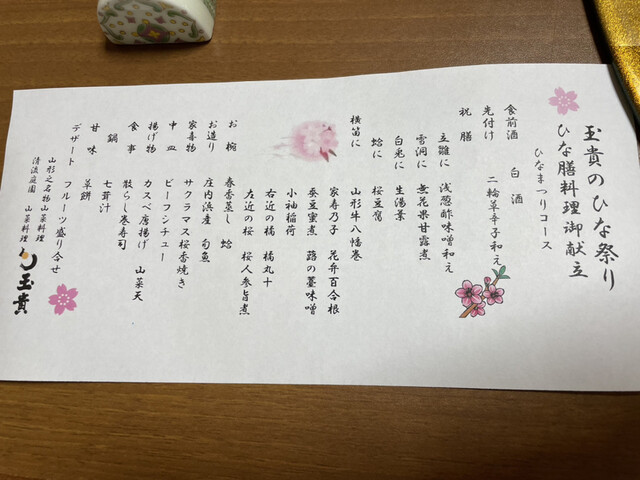 玉貴のひな祭り
ひな膳料理御献立
ひなまつりコース
食前酒 白酒
先付け 二輪草辛子和え
祝膳
立雛に 浅葱酢味噌和え
雪洞に 無花果甘露煮
白兎に 生湯葉
蛤に 桜豆腐
横笛に 山形牛八幡巻
家寿乃子 花弁百合根
蚕豆蜜煮 蕗の薹味噌
小袖稲荷
右近の橘 橘丸十
左近の桜 桜人参旨煮
お椀 春香蒸し 蛤
お造り 庄内浜産 旬魚
家喜物 サクラマス桜香焼き
中皿 ビーフシチュー
揚げ物 カスベ唐揚げ 山菜天
食事 散らし巻寿司
鍋 七草汁
甘味 草餅
デザート フルーツ盛り合せ
山形之名物山菜料理
清流庭園 山菜料理 玉貴